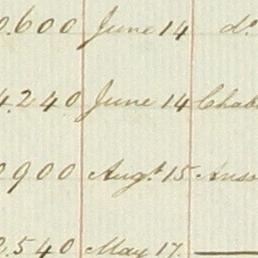 0.600 June 14 do.
4.240 June 14
0900 Augt. 15
0.540 May 17.